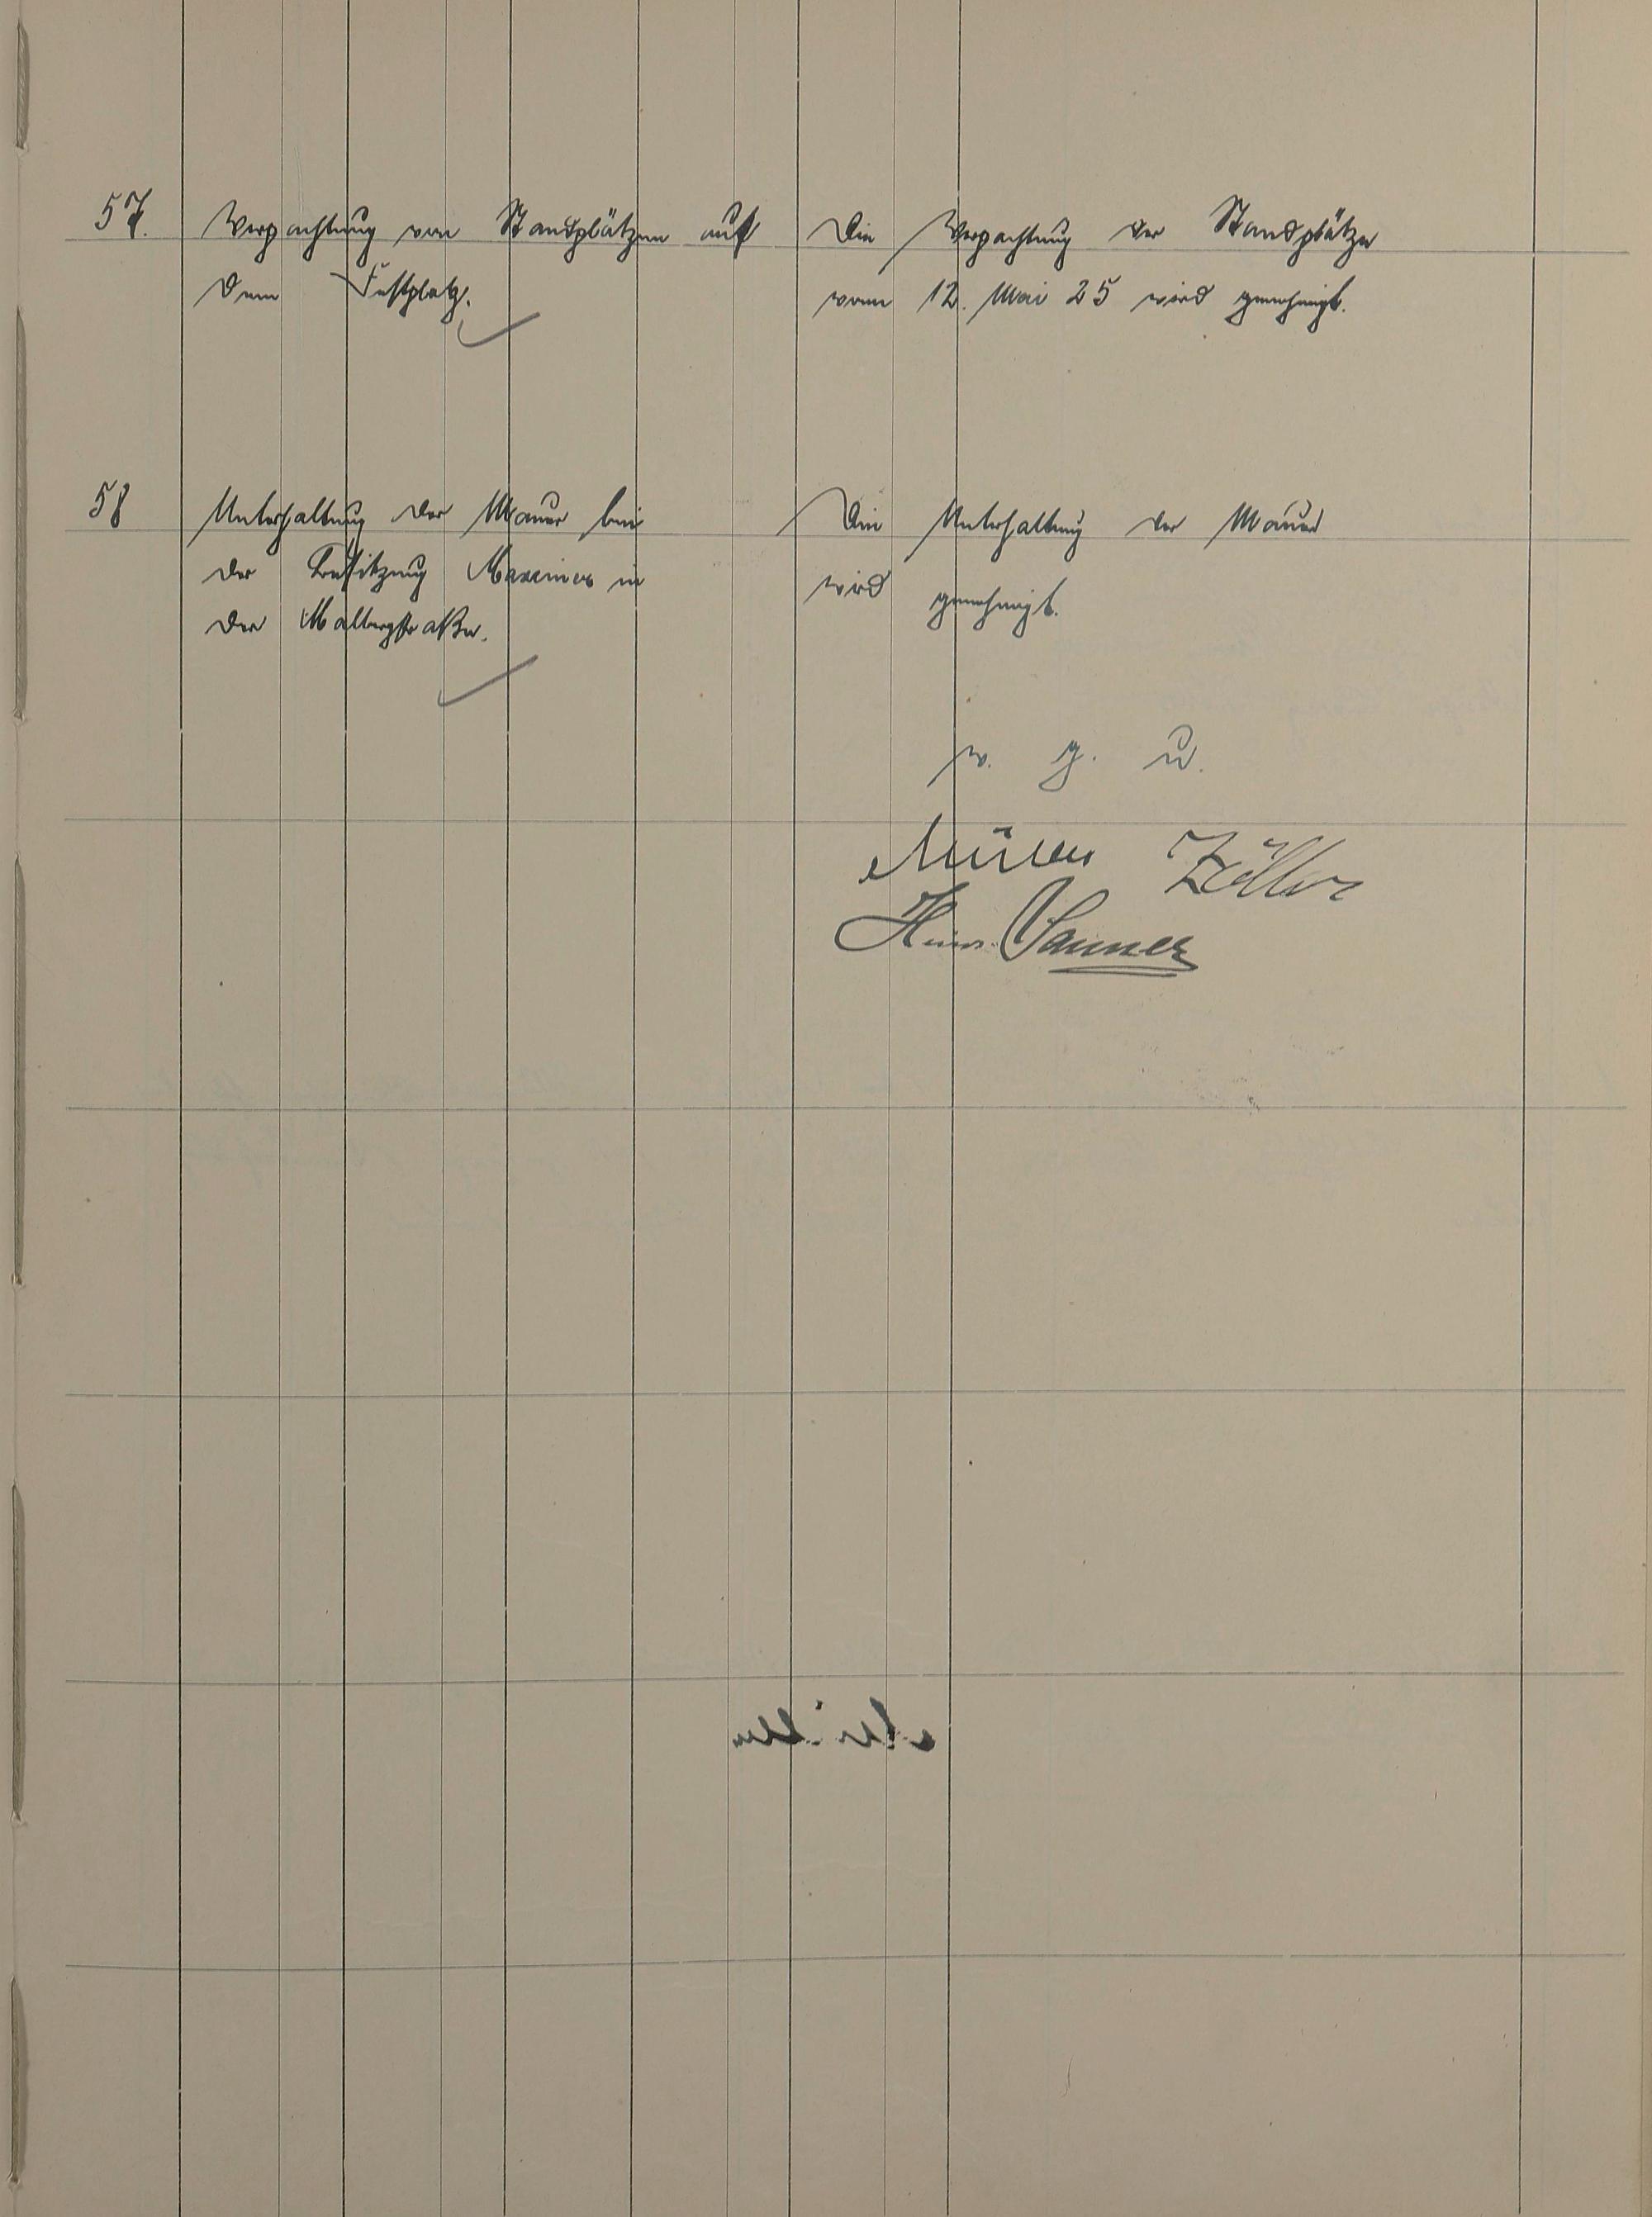 57. Verpachtung von Standplätzen auf
dem Festplatz.
Die Verpachtung der Standplätze
vom 12. Mai 25 wird genehmigt.
58 Unterhaltung der Mauer bei
der Besitzung Maxeiner in
der Malbergstraße.
Die Unterhaltung der Mauer
wird genehmigt.
v. g. u.
Müller Zöller
Heinr. Sanner